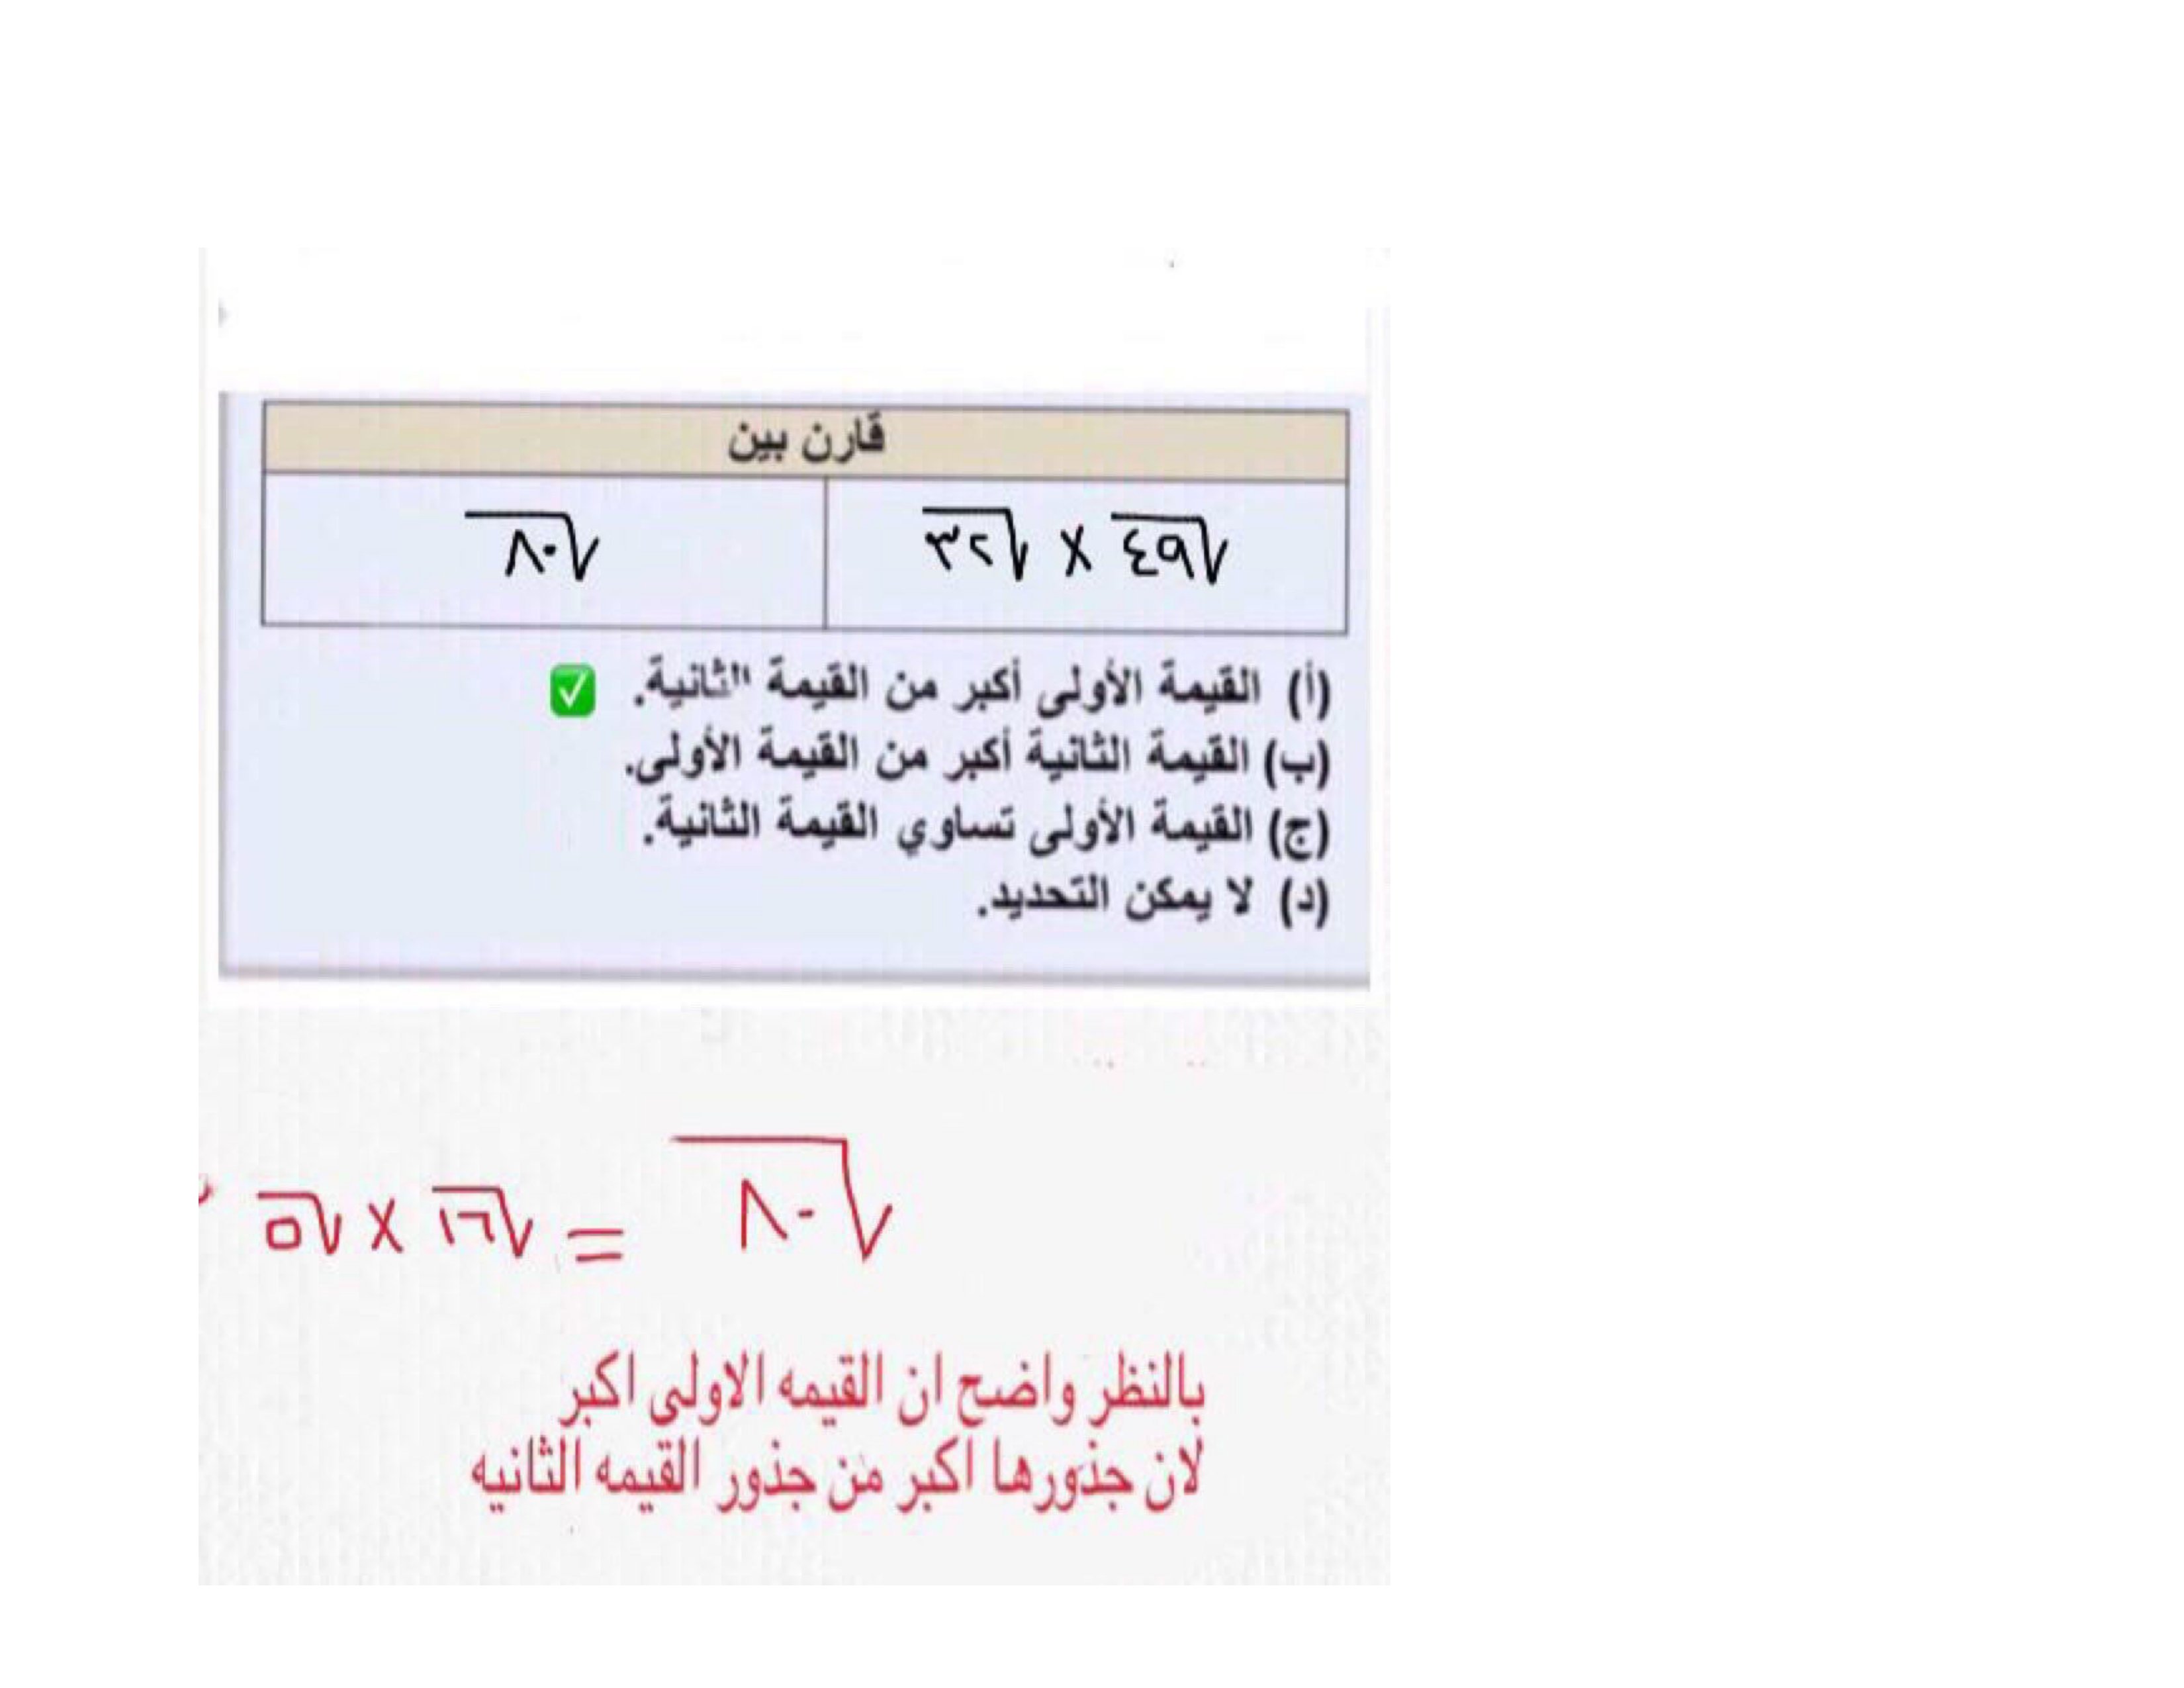 قارن بين
√٤٩ × √٣٢
√٨٠
(أ) القيمة الأولى أكبر من القيمة الثانية. ✅
(ب) القيمة الثانية أكبر من القيمة الأولى.
(ج) القيمة الأولى تساوي القيمة الثانية.
(د) لا يمكن التحديد.
√٨٠ = √١٦ × √٥
بالنظر واضح ان القيمه الاولى اكبر
لان جذورها اكبر من جذور القيمه الثانيه